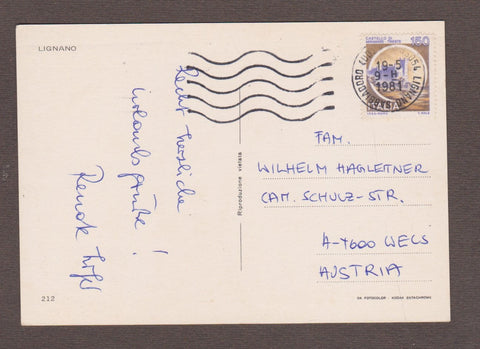 LIGNANO
Recht herzliche
Urlaubsgrüße!
Renate
212
Riproduzione vietata
CASTELLO DI
MIRAMARE - TRIESTE 150
LIGNANO SABBIADORO
19-5
9-H
1981
FAM.
WILHELM HAGLEITNER
CAM. SCHULZ-STR.
A-4600 WELS
AUSTRIA
FOTOCOLOR - KODAK EKTACHROME